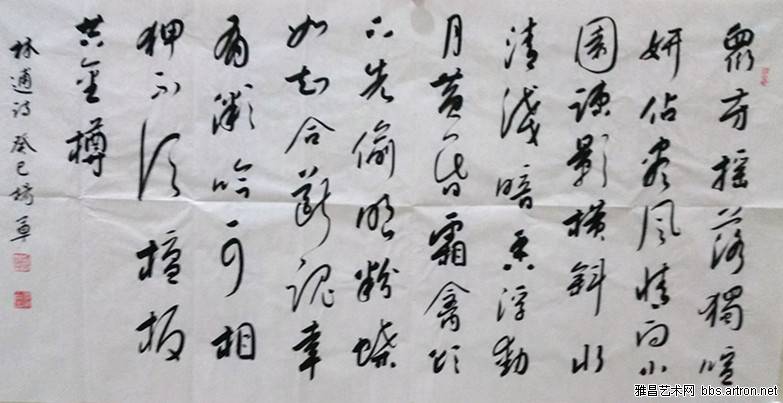 眾芳摇落獨暄
妍佔尽风情向小
園疎影横斜水
清浅暗香浮動
月黄昏霜禽欲
下先偷眼粉蝶
如知合断魂幸
有微吟可相
狎不须檀板
共金樽
林逋诗 癸巳 草
雅昌艺术网 bbs.artron.net